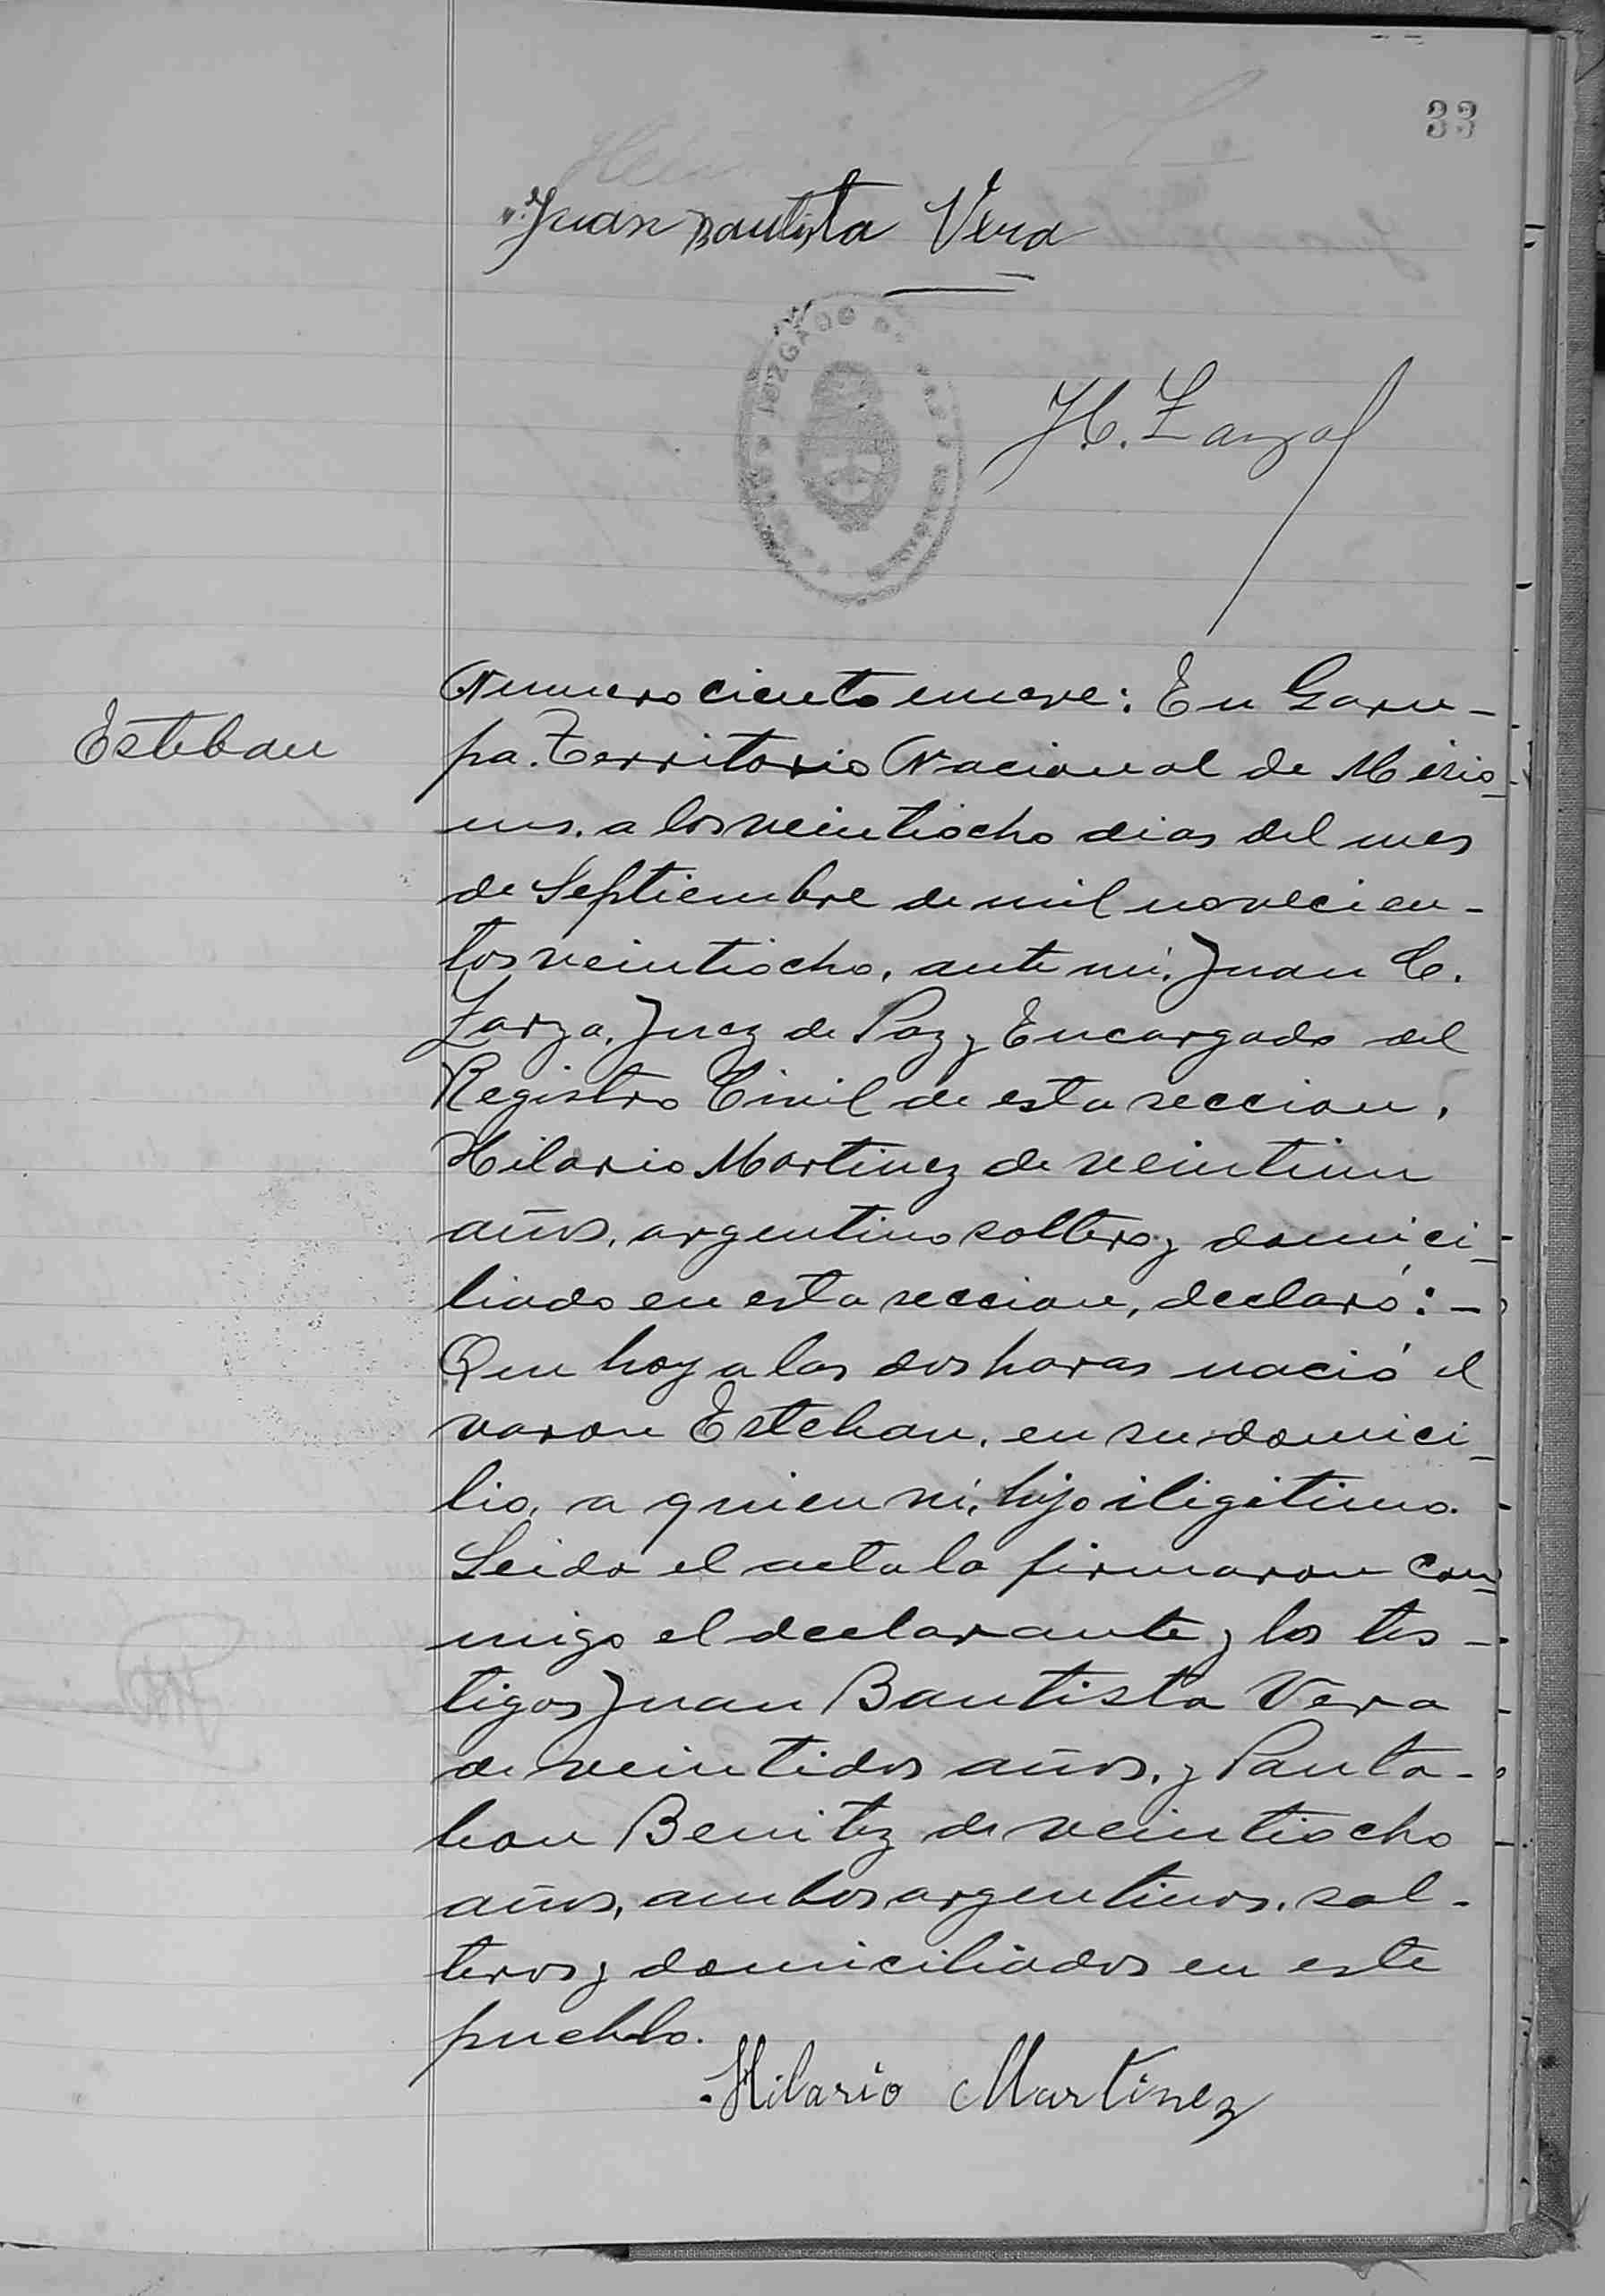 33
Juan Bautista Vera
JUZGADO
Esteban
Numero ciento nueve: En Garu-
pa. Territorio Nacional de Misio-
nes. a los veintiocho dias del mes
de Septiembre de mil novecien-
tos veintiocho, ante mi. Juan C.
Zarza, Juez de Paz y Encargado del
Registro Civil de esta seccion,
Hilario Martinez de veintiun
años, argentino soltero y domici-
liado en esta seccion, declaró: -
Que hoy a las dos horas nació el
varon Esteban, en su domici-
lio, a quien vi, hijo iligitimo.
Leida el acta la firmaron con-
migo el declarante y los tes-
tigos Juan Bautista Vera
de veintidos años, y Panta-
leon Benitez de veintiocho
años, ambos argentinos, sol-
teros y domiciliados en este
pueblo.
Hilario Martinez